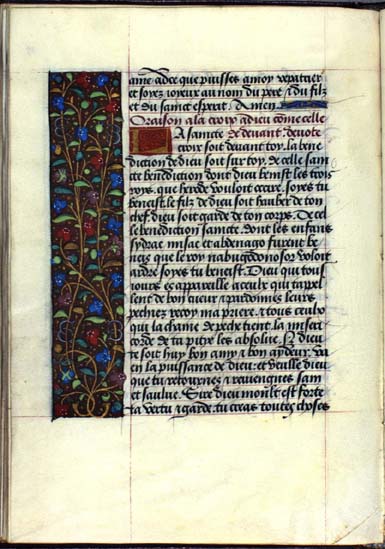 ame adce que puisses a moy repairier
et soyez ioyeux au nom du pere ⁊ du filz
et du sainct esperit. Amen
Oraison a la croix a dieu come celle
A saincte de devant. devote
croix soit devant toy. la bene
diction de dieu soit sur toy. de celle sain
cte benediction dont dieu benist les trois
roys. que herode vouloit occire. soyes tu
benoist. le filz de dieu soit hauber de ton
chef. dieu soit garde de ton corps. De cel
le benediction saincte. dont les enfans
sydrac misac et abdenago furent be
neis que le roy nabugodonosor voloit
ardre soyes tu benoist. Dieu qui tous
iours es appareille a ceulx qui tapel
lent de bon cueur ⁊ pardonnes leurs
pechiez recoy ma priere. ⁊ tous ceulx
que la chaine de peche tient. la miseri
corde de ta pitye les absolve. Dieu
te soit huy bon amy ⁊ bon aydeur. va
en la puissance de dieu. et veulle dieu
que tu retournez ⁊ reviengnes sain
et saulue. Sire dieu moult est forte
ta vertu ⁊ garde. tu creas toutes choses